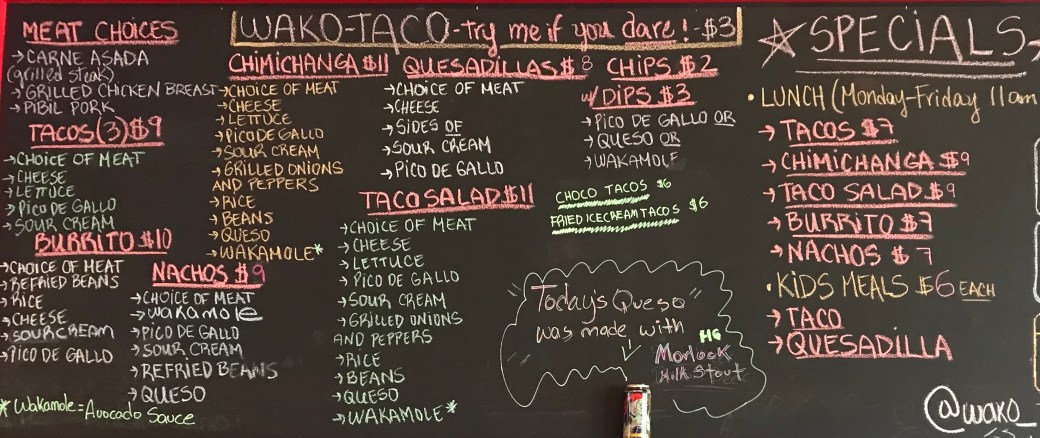 MEAT CHOICES
→CARNE ASADA
(grilled steak)
→GRILLED CHICKEN BREAST
→PIBIL PORK
TACOS(3)$9
→CHOICE OF MEAT
→CHEESE
→LETTUCE
→PICO DE GALLO
→SOUR CREAM
BURRITO $10
→CHOICE OF MEAT
→REFRIED BEANS
→RICE
→CHEESE
→SOUR CREAM
→PICO DE GALLO
NACHOS $9
→CHOICE OF MEAT
→wakamole
→PICO DE GALLO
→SOUR CREAM
→REFRIED BEANS
→QUESO
*Wakamole=Avocado Sauce
WAKO-TACO-try me if you dare!-$3
CHIMICHANGA $11
→CHOICE OF MEAT
→CHEESE
→LETTUCE
→PICO DE GALLO
→SOUR CREAM
→GRILLED ONIONS
AND PEPPERS
→RICE
→BEANS
→QUESO
→WAKAMOLE*
QUESADILLAS $8
→CHOICE OF MEAT
→CHEESE
→SIDES OF
→SOUR CREAM
→PICO DE GALLO
TACO SALAD $11
→CHOICE OF MEAT
→CHEESE
→LETTUCE
→PICO DE GALLO
→SOUR CREAM
→GRILLED ONIONS
AND PEPPERS
→RICE
→BEANS
→QUESO
→WAKAMOLE*
CHIPS $2
w/ DIPS $3
→PICO DE GALLO OR
→QUESO OR
→WAKAMOLE
CHOCO TACOS $6
FRIED ICECREAM TACOS $6
"Today's Queso"
was made with
HG
Morlock
Milk Stout
SPECIALS
•LUNCH (Monday-Friday 11am
→TACOS $7
→CHIMICHANGA $9
→TACO SALAD $9
→BURRITO $7
→NACHOS $7
•KIDS MEALS $6 EACH
→TACO
→QUESADILLA
@wako_